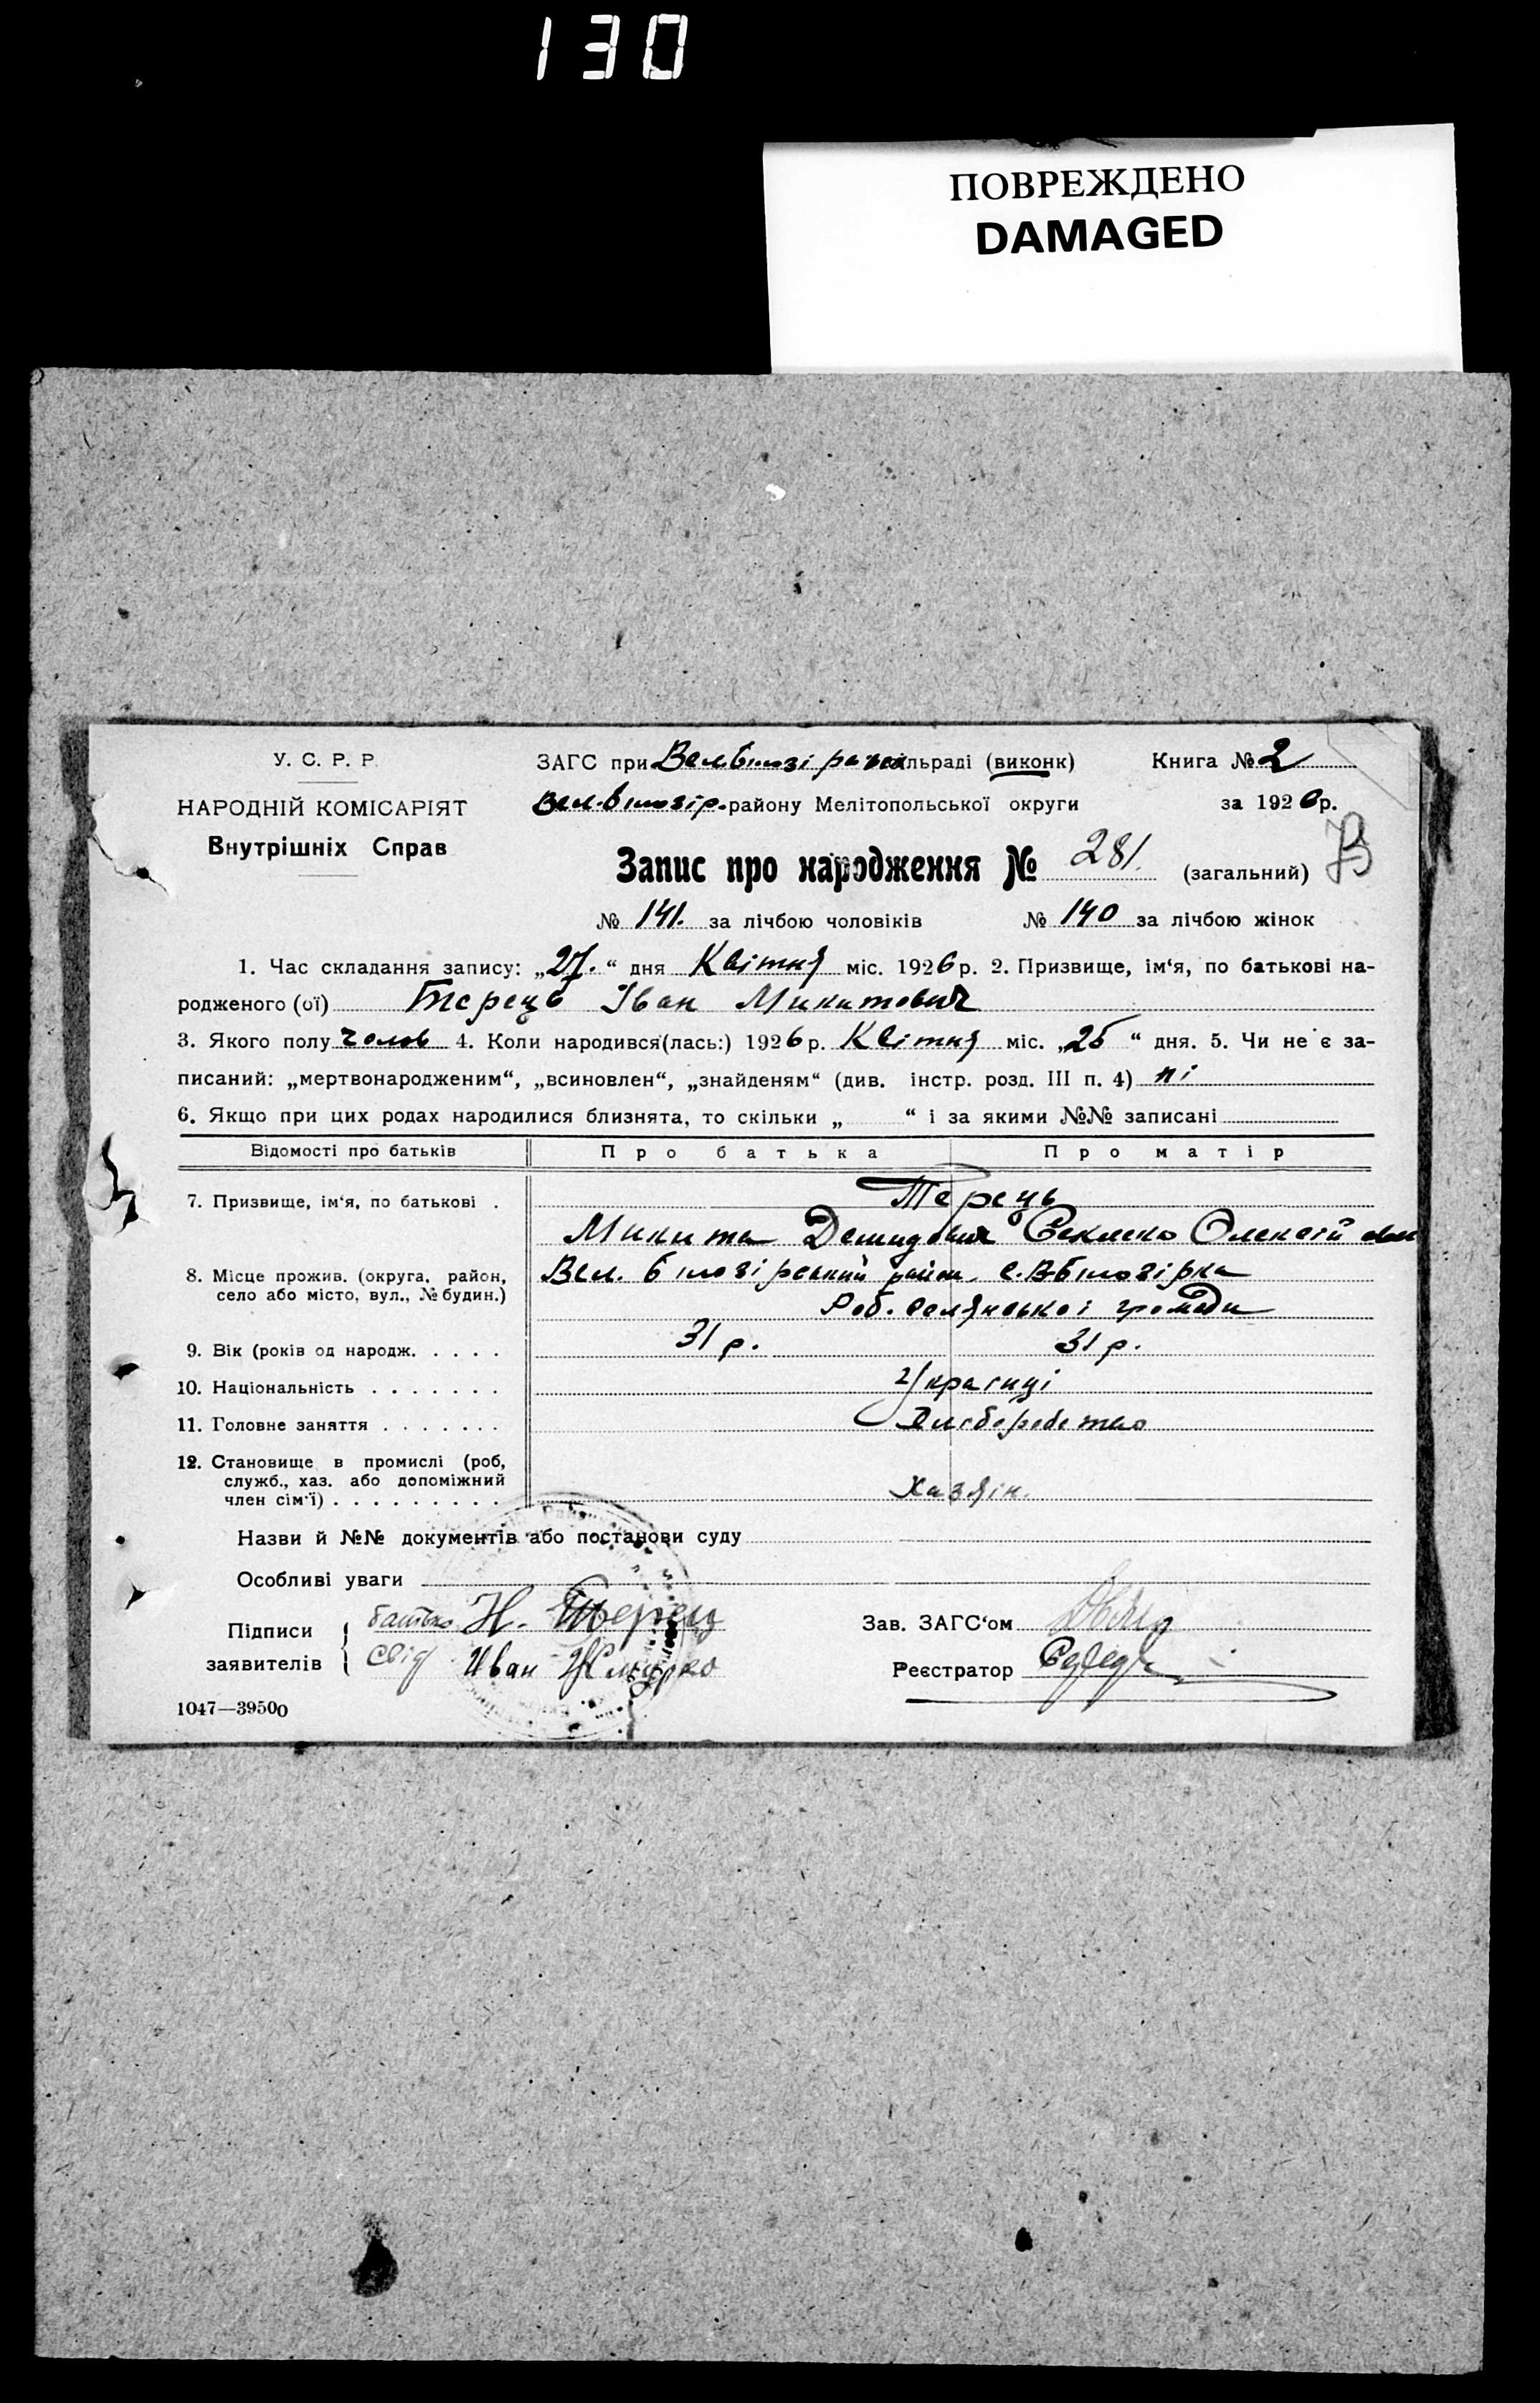 130
ПОВРЕЖДЕНО
DAMAGED
У. С. Р. Р.
НАРОДНІЙ КОМІСАРІЯТ
Внутрішніх Справ
ЗАГС при сільраді (виконк) Книга № 2
Вел. Білозір. району Мелітопольської округи за 1926 р.
Запис про народження № 281. (загальний)
№ 141. за лічбою чоловіків № 140 за лічбою жінок
1. Час складання запису: „27.“ дня Квітня міс. 1926 р. 2. Призвище, ім‘я, по батькові на-
родженого (ої) Терець Іван Микитович
3. Якого полу чолов 4. Коли народився(лась:) 1926 р. Квітня міс. „25“ дня. 5. Чи не є за-
писаний: „мертвонародженим“, „всиновлен“, „знайденям“ (див. інстр. розд. III п. 4) ні
6. Якщо при цих родах народилися близнята, то скільки „ “ і за якими №№ записані
Відомості про батьків Про батька Про матір
7. Призвище, ім‘я, по батькові . Терець
Микита Демидович Векла Олексіївна
8. Місце прожив. (округа, район, Вел. Білозірський район, с. В-Білозірка
село або місто, вул., № будин.) Роб. селянської громади
9. Вік (років од народж. . . . . 31 р. 31 р.
10. Національність . . . . . . . Українці
11. Головне заняття . . . . . . . Хліборобство
12. Становище в промислі (роб,
служб., хаз. або допоміжний
член сім‘ї) . . . . . . . . . Хазяїн.
Назви й №№ документів або постанови суду
Особливі уваги
Підписи заявителів
батько Н. Терец
свід Иван
Зав. ЗАГС‘ом
Реєстратор
1047—39500